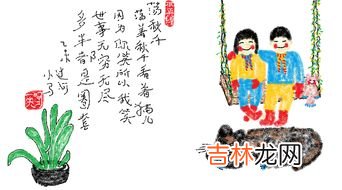 荡秋千
荡着秋千看着儿
因为你笑所以我笑
世事无穷无尽
多半皆是圈套
过河
吉林龙网